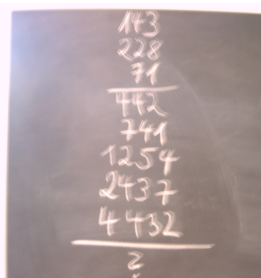 143
228
71
442
741
1254
2437
4432
2